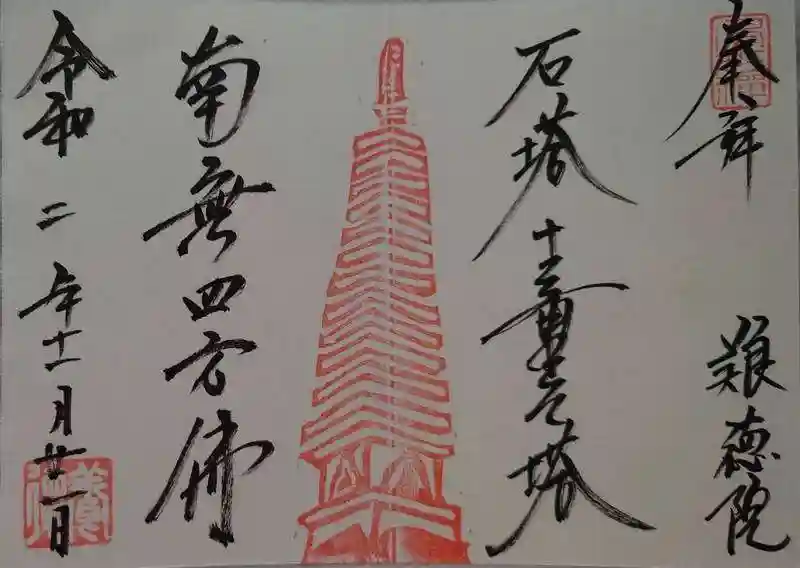 奉拝
難徳院
石塔
十三重之塔
南無四方佛
令和二年十一月廿一日